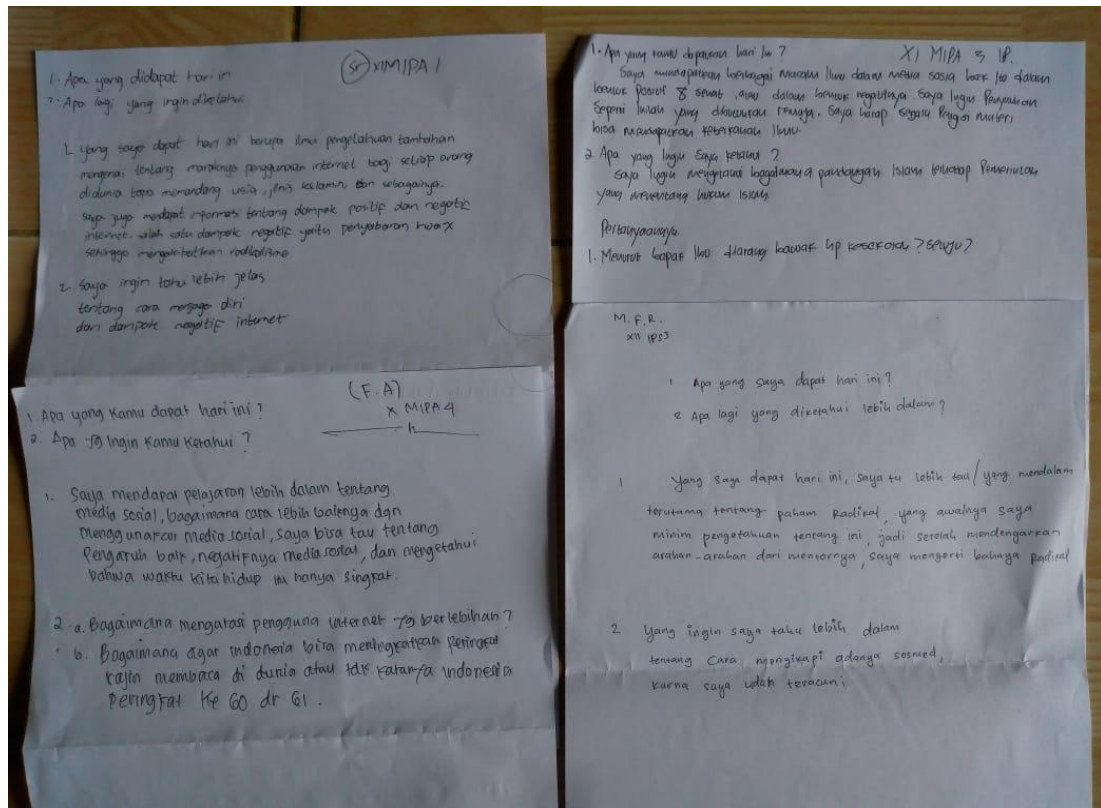 (Sr) XI MIPA 1
1. Apa yang didapat hari ini
2. Apa lagi yang ingin diketahui
1. yang saya dapat hari ini berupa ilmu pengetahuan tambahan
mengenai tentang maraknya penggunaan internet bagi setiap orang
didunia tanpa memandang usia, jenis kelamin, dan sebagainya.
saya juga mendapat informasi tentang dampak positif dan negatif
internet. salah satu dampak negatif yaitu penyebaran hoax
sehingga mengakibatkan radikalisme
2. saya ingin tahu lebih jelas
tentang cara menjaga diri
dari dampak negatif internet
(F.A)
X MIPA 4
1. Apa yang Kamu dapat hari ini ?
2. Apa yg Ingin Kamu Ketahui ?
1. Saya mendapat pelajaran lebih dalam tentang
media sosial, bagaimana cara lebih baiknya dgn
menggunakan media sosial, saya bisa tau tentang
Pengaruh baik, negatifnya media sosial, dan mengetahui
bahwa waktu kita hidup ini hanya singkat.
2. a. Bagaimana mengatasi pengguna internet yg berlebihan ?
b. Bagaimana agar indonesia bisa meningkatkan Peringkat
rajin membaca di dunia atau tdk katanya indonesia
Peringkat Ke 60 dr 61.
XI MIPA 3 IP.
1. Apa yang kamu dapatkan hari ini ?
Saya mendapatkan berbagai macam Ilmu dalam media sosial baik itu dalam
bentuk Positif & , atau dalam bentuk negatifnya. Saya Ingin Penyuluhan
Seperti Inilah yang dibutuhkan remaja. Saya harap segala Pengisi materi
bisa mendapatkan Ilmu.
2. Apa yang Ingin Saya ketahui ?
Saya Ingin mengetahui bagaimana pandangan Islam terhadap Pemerintah
yang menentang hukum Islam
Pertanyaannya.
1. Menurut bapak Ibu dilarang bawak Hp kesekolah ? Setuju ?
M. F. R.
XII IPS3
1 Apa yang saya dapat hari ini ?
2 Apa lagi yang diketahui lebih dalam ?
1 Yang saya dapat hari ini, saya tu lebih tau / yang mendalam
terutama tentang paham Radikal, yang awalnya saya
minim pengetahuan tentang ini, jadi setelah mendengarkan
arahan-arahan dari mentornya, saya mengerti bahaya Radikal
2 Yang ingin saya tahu lebih dalam
tentang Cara mengikapi adanya sosmed,
karna saya udah teracuni